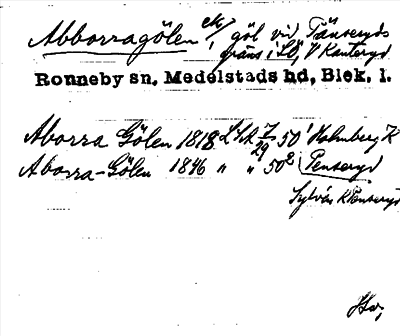 Abborragölen ek, göl vid Tänseryds
gräns i SÖ, V Kanteryd
Ronneby sn. Medelstads hd, Blek. l.
Aborra Gölen 1818 LSA 50¹ Holmberg K
29
Aborra-Gölen 1846 " " 50² Penseryd
Sylvén K Penseryd